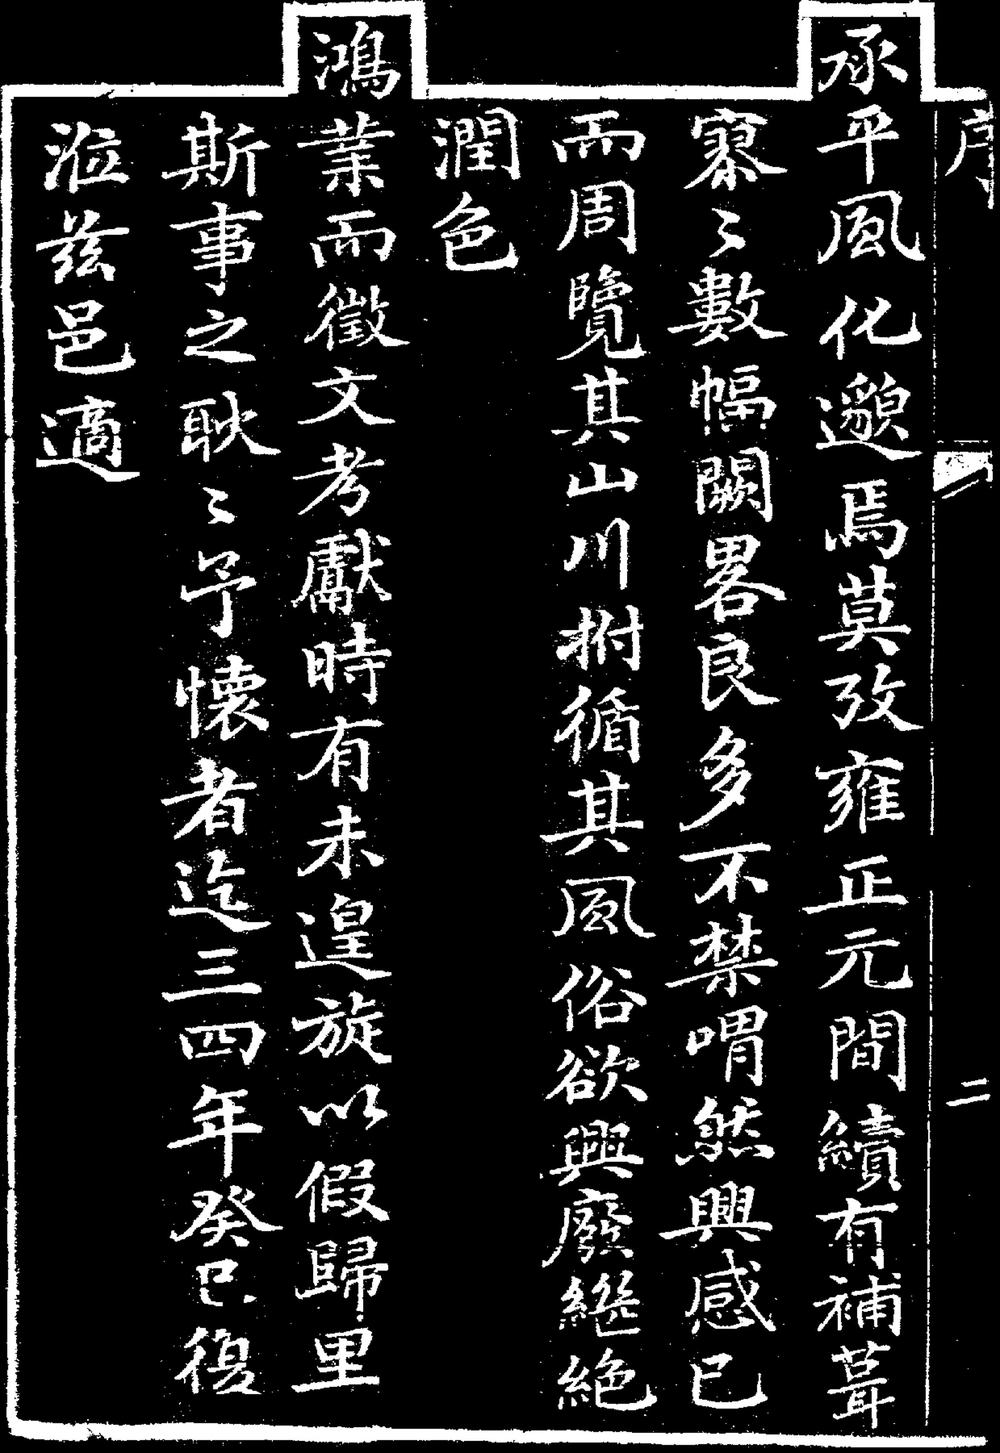 序
二
承平風化邈焉莫攷雍正元間續有補葺
寥〻數幅闕畧良多不禁喟然興感已
而周覽其山川拊循其風俗欲興廢繼絕
潤色
鴻業而徵文考獻時有未遑旋以假歸里
斯事之耿〻予懷者迄三四年癸巳復
涖茲邑適